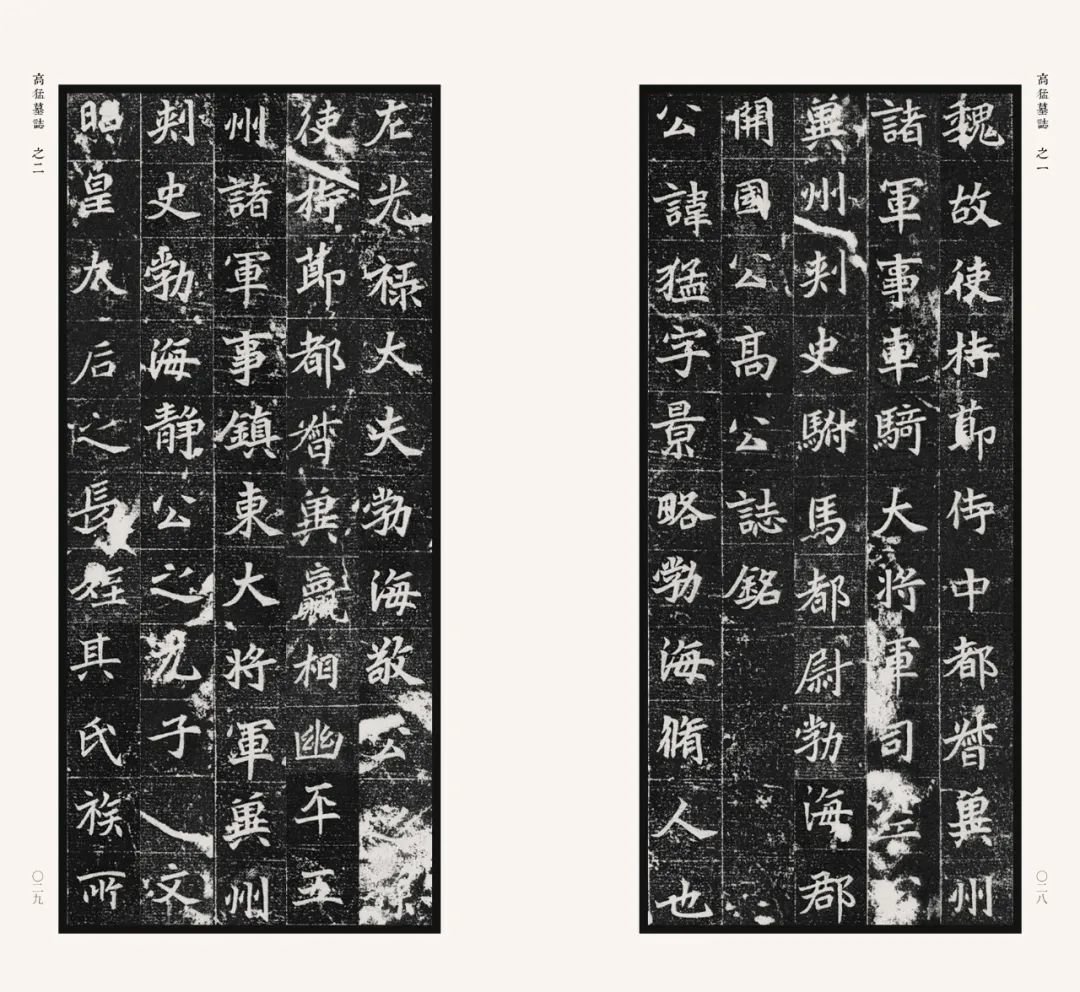 高猛墓誌 之一
魏故使持節侍中都督冀州
諸軍事車騎大將軍司
冀州刺史駙馬都尉勃海郡
開國公高公誌銘
公諱猛字景略勃海脩人也
〇二八
高猛墓誌 之二
左光祿大夫勃海敬公
使持節都督冀瀛相幽平五
州諸軍事鎮東大將軍冀州
刺史勃海靜公之兄子文
昭皇太后之長姪其氏族所
〇二九